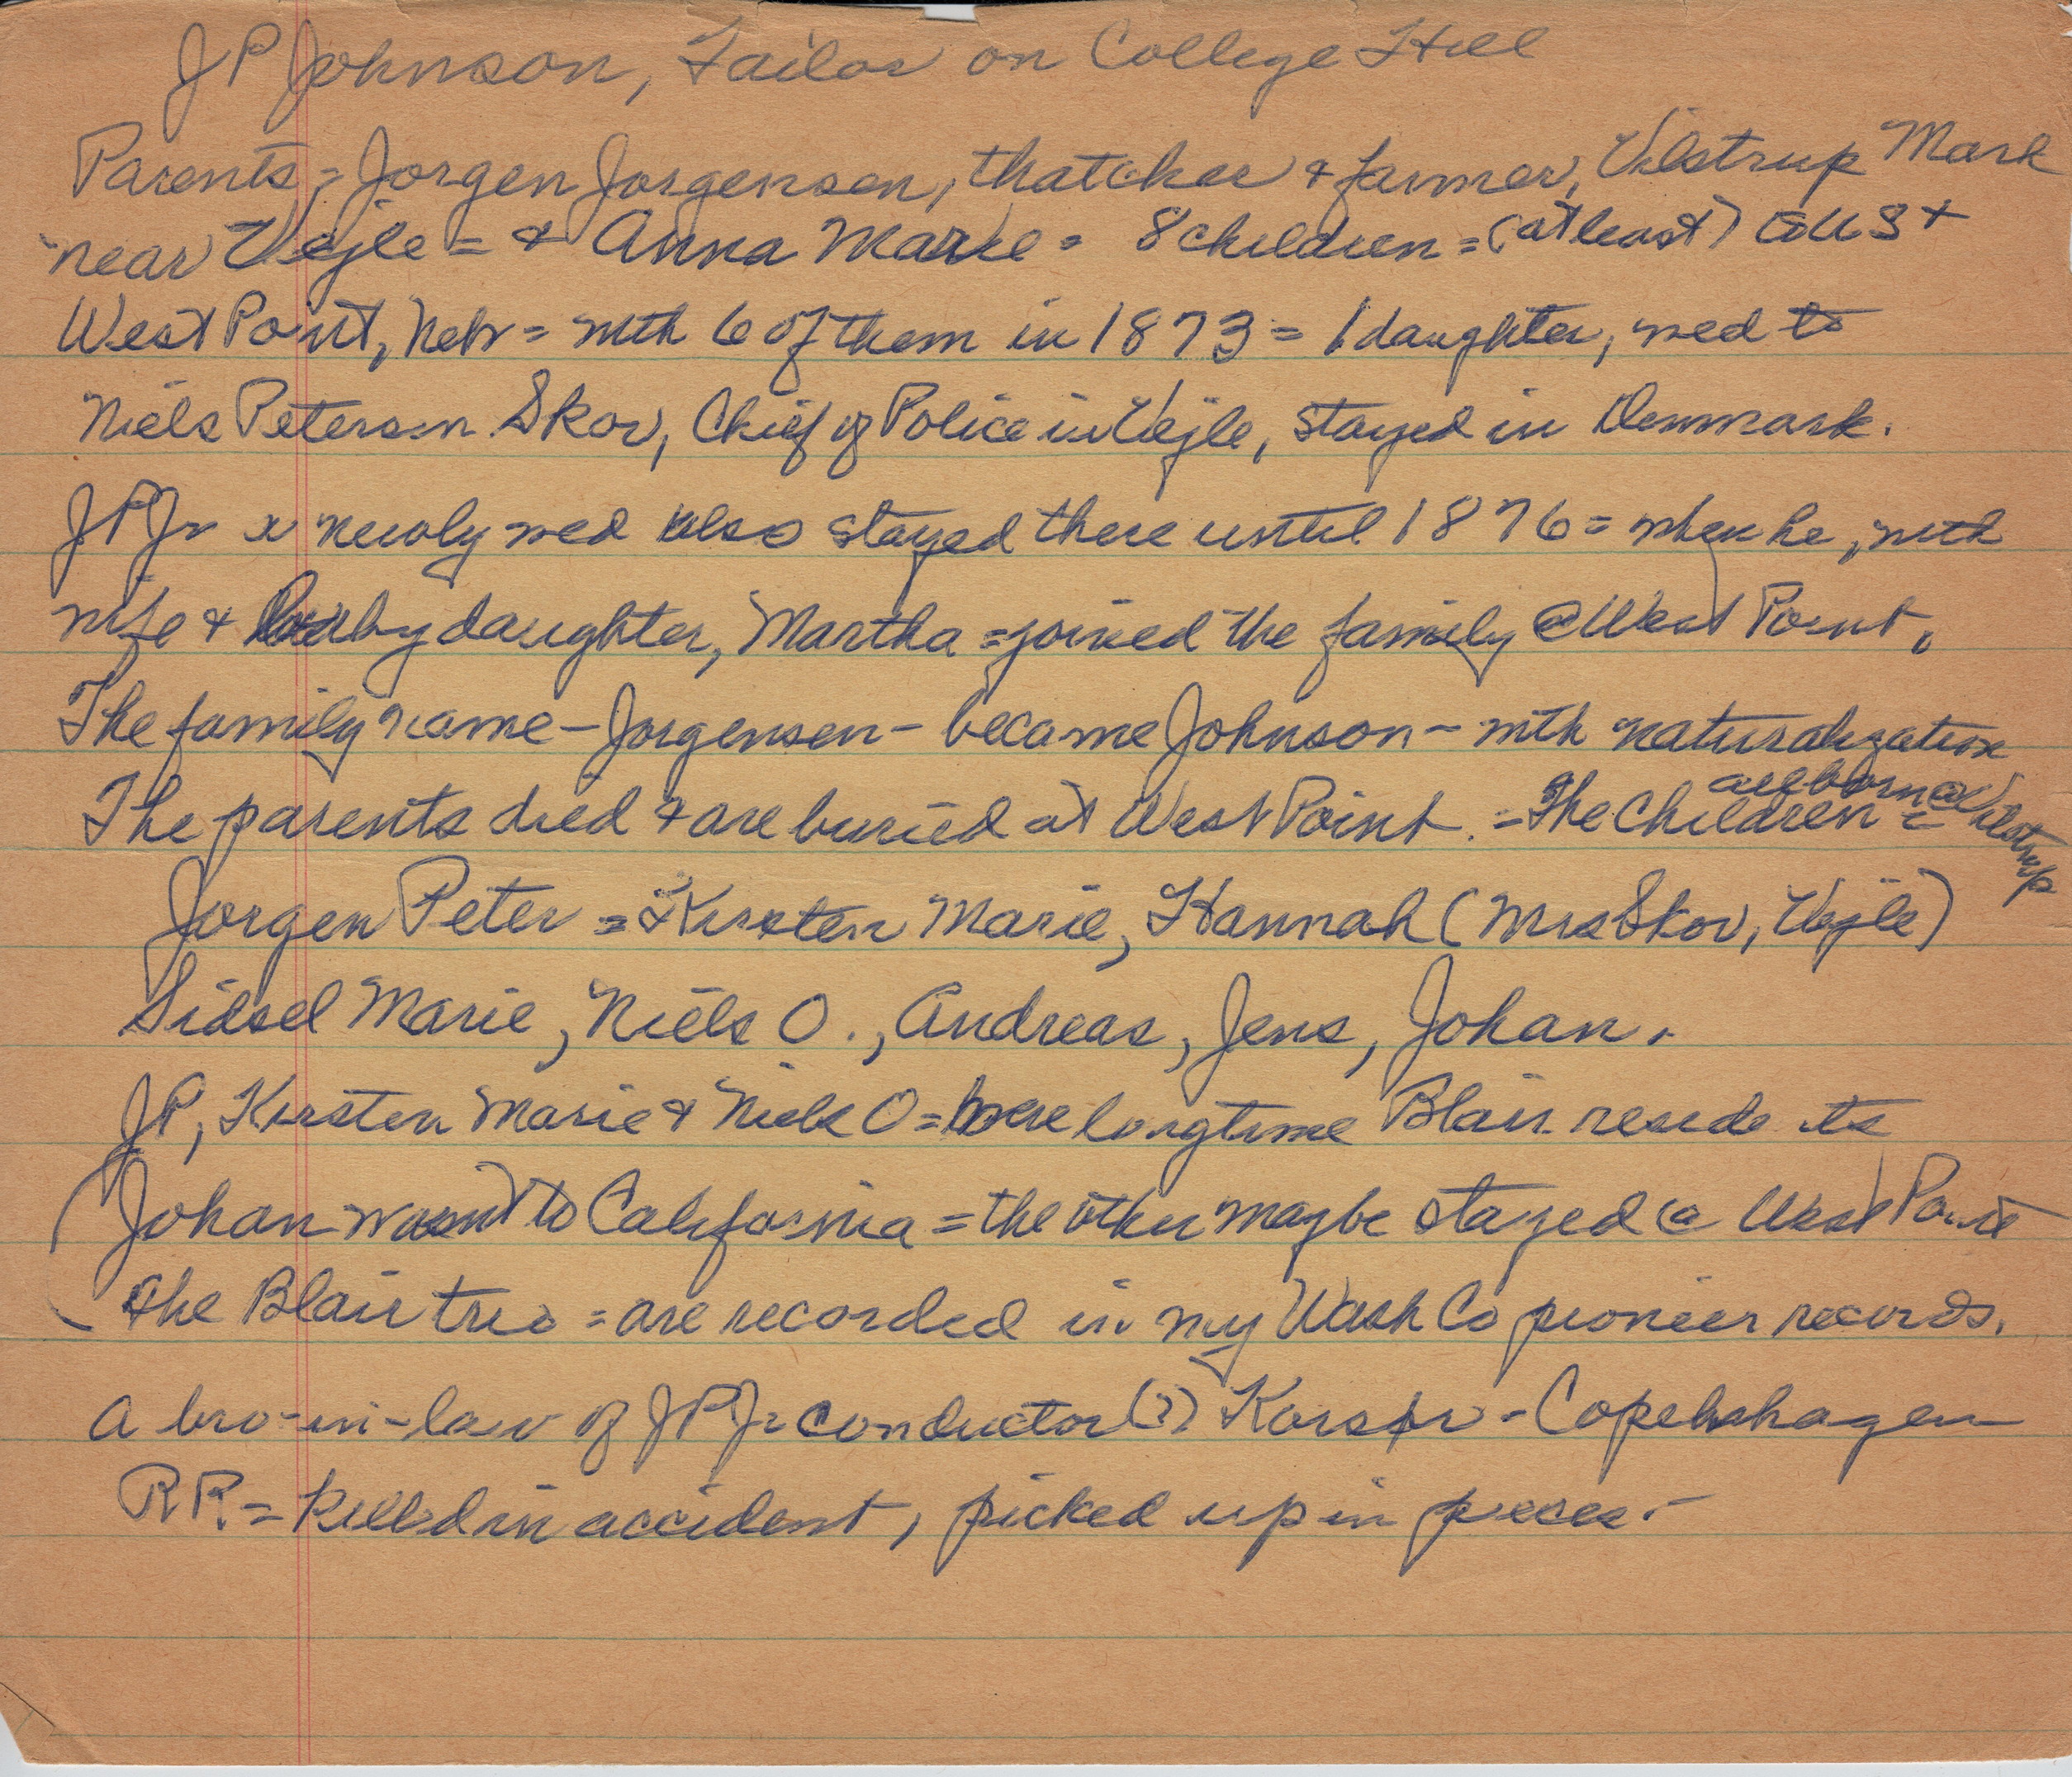 JP Johnson, Tailor on College Hill
Parents = Jorgen Jorgensen, thatcher & farmer, Vilstrup Mark
near Vejle = & Anna Marie = 8 children = (at least) to US &
West Point, Nebr = with 6 of them in 1873 = 1 daughter, wed to
Niels Peterson Skov, Chief of Police in Vejle, stayed in Denmark.
JPJr newly wed also stayed there until 1876 = when he, with
wife & baby daughter, Martha = joined the family @ West Point.
The family name - Jorgensen - became Johnson - with naturalization
The parents died & are buried at West Point. = The Children = all born @ Vilstrup
Jorgen Peter = Kirsten Marie, Hannah (Mrs Skov, Vejle)
Sidsel Marie, Niels O., Andreas, Jens, Johan.
JP, Kirsten Marie & Niels O = were longtime Blair residents
(Johan went to California = the other maybe stayed @ West Point
The Blair trio = are recorded in my Wash Co pioneer records.
A bro-in-law of JPJr conductor (?) Korsør - Copenhagen
RR = killed in accident, picked up in pieces.